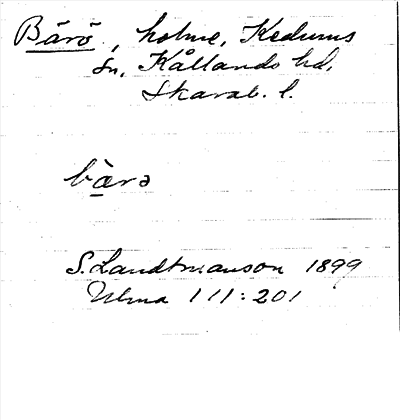 Bärö, holme, Kedums
sn, Kållands hd,
Skarab. l.
bä̀rə
S. Landtmanson 1899
Ulma 111:201